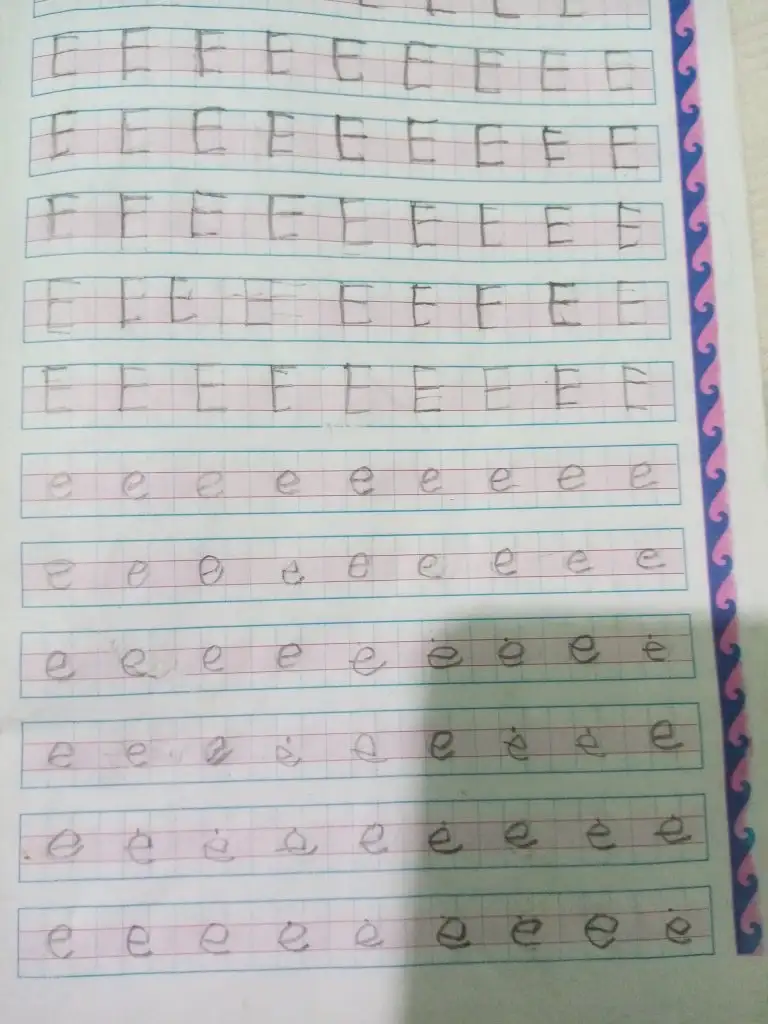 E E E E E E E E E
E E E E E E E E E
E E E E E E E E E
E E E E E E E E E
E E E E E E E E E
e e e e e e e e e
e e e e e e e e e
e e e e e e e e e
e e e e e e e e e
e e e e e e e e e
e e e e e e e e e